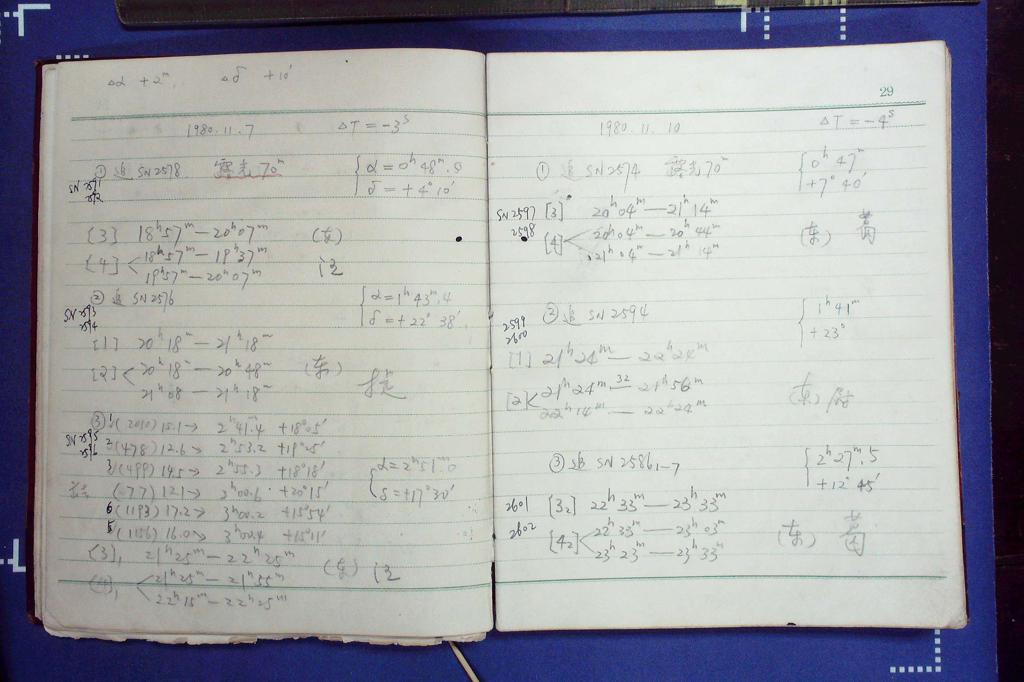 Δα +2ᵐ, Δδ +10′
1980.11.7 ΔT = -3ˢ
① 追 SN2578 露光70ᵐ { α = 0ʰ 48ᵐ.5
δ = +4° 10′
[3] 18ʰ57ᵐ — 20ʰ07ᵐ (东)
[4] < 18ʰ57ᵐ — 19ʰ37ᵐ
19ʰ57ᵐ — 20ʰ07ᵐ
② 追 SN2576 { α = 1ʰ 43ᵐ.4
δ = +22° 38′
SN2593
2594
[1] 20ʰ18ᵐ — 21ʰ18ᵐ
[2] < 20ʰ18ᵐ — 20ʰ48ᵐ (东)
21ʰ08 — 21ʰ18ᵐ
③ 1/(2010) 15.1 → 2ʰ41.4 +18°05′
SN2595
2596
2/(478) 12.6 → 2ʰ53.2 +19°25′
3/(499) 14.5 → 2ʰ55.3 +18°18′ { α = 2ʰ51ᵐ.0
δ = +17°30′
(77) 12.1 → 3ʰ00.6 +20°15′
6/(1193) 17.2 → 3ʰ00.2 +15°54′
5/(1156) 16.0 → 3ʰ02.4 +15°11′
(3)₁ 21ʰ25ᵐ — 22ʰ25ᵐ (东)
(4)₁ < 21ʰ25ᵐ — 21ʰ55ᵐ
22ʰ15ᵐ — 22ʰ25ᵐ
29
1980.11.10 ΔT = -4ˢ
① 追 SN2574 露光70ᵐ { 0ʰ 47ᵐ
+7° 40′
SN2597 [3] 20ʰ04ᵐ — 21ʰ14ᵐ
2598 [4] < 20ʰ04ᵐ — 20ʰ44ᵐ (东)
21ʰ04ᵐ — 21ʰ14ᵐ
② 追 SN2594 { 1ʰ 41ᵐ
+23°
2599
2600
[1] 21ʰ24ᵐ — 22ʰ24ᵐ
[2] < 21ʰ24ᵐ —32 21ʰ56ᵐ (东)
22ʰ14ᵐ — 22ʰ24ᵐ
③ 追 SN2586₁₋₇ { 2ʰ 27ᵐ.5
+12° 45′
2601 [3₂] 22ʰ33ᵐ — 23ʰ33ᵐ
2602 [4₂] < 22ʰ33ᵐ — 23ʰ03ᵐ (东)
23ʰ23ᵐ — 23ʰ33ᵐ